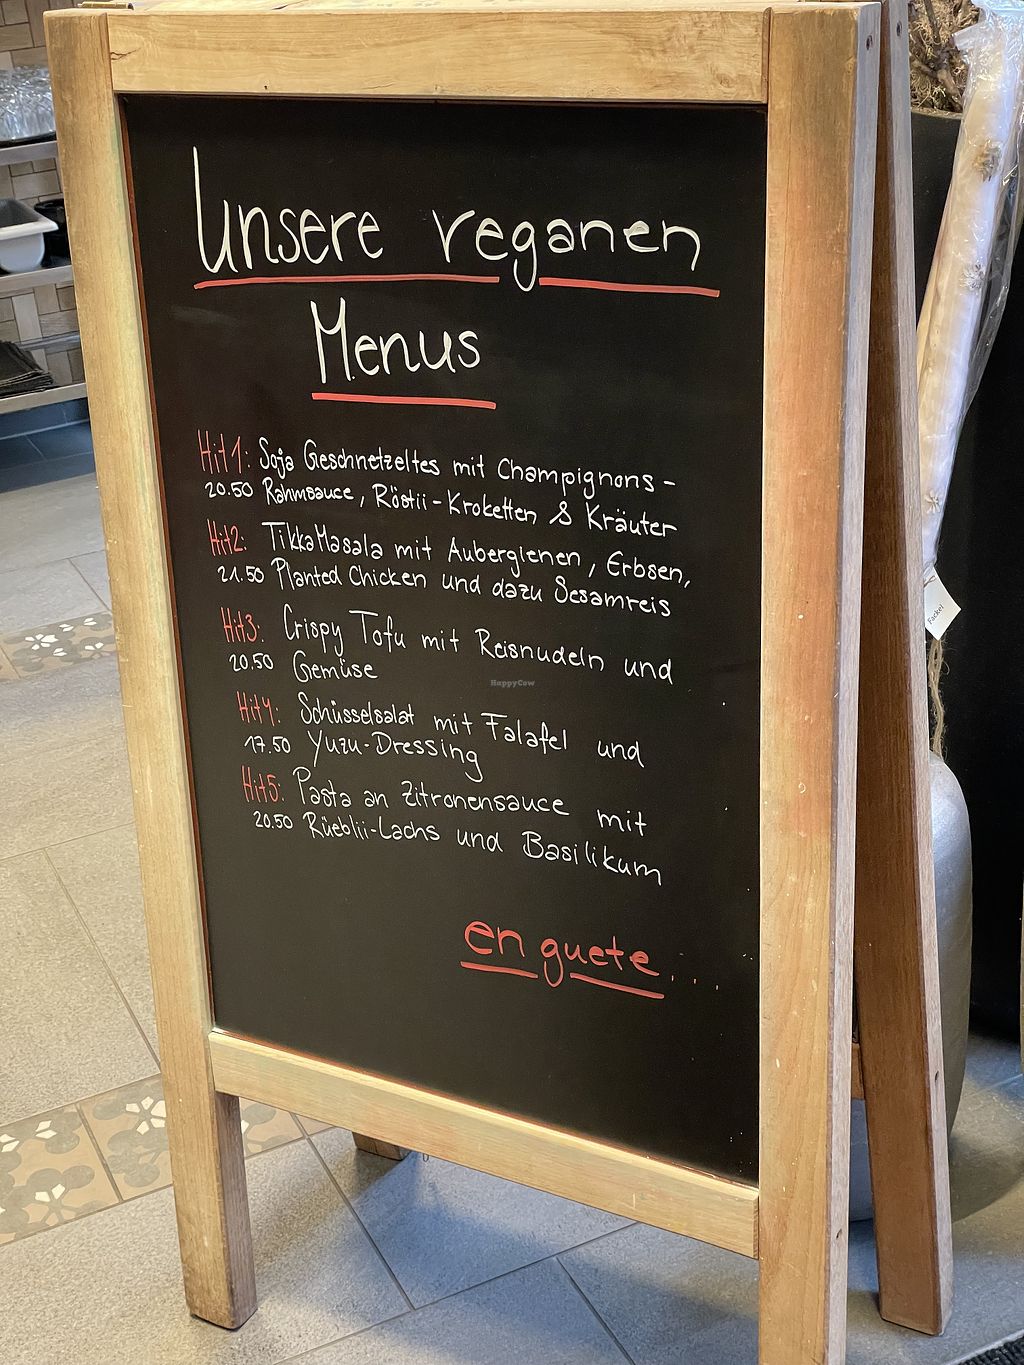 Unsere veganen
Menus
Hit1: Soja Geschnetzeltes mit Champignons-
20.50 Rahmsauce, Röstii-Kroketten & Kräuter
Hit2: TikkaMasala mit Auberginen, Erbsen,
21.50 Planted Chicken und dazu Sesamreis
Hit3: Crispy Tofu mit Reisnudeln und
20.50 Gemüse
HappyCow
Hit4: Schüsselsalat mit Falafel und
17.50 Yuzu-Dressing
Hit5: Pasta an Zitronensauce mit
20.50 Rüeblii-Lachs und Basilikum
en guete...
Fackel